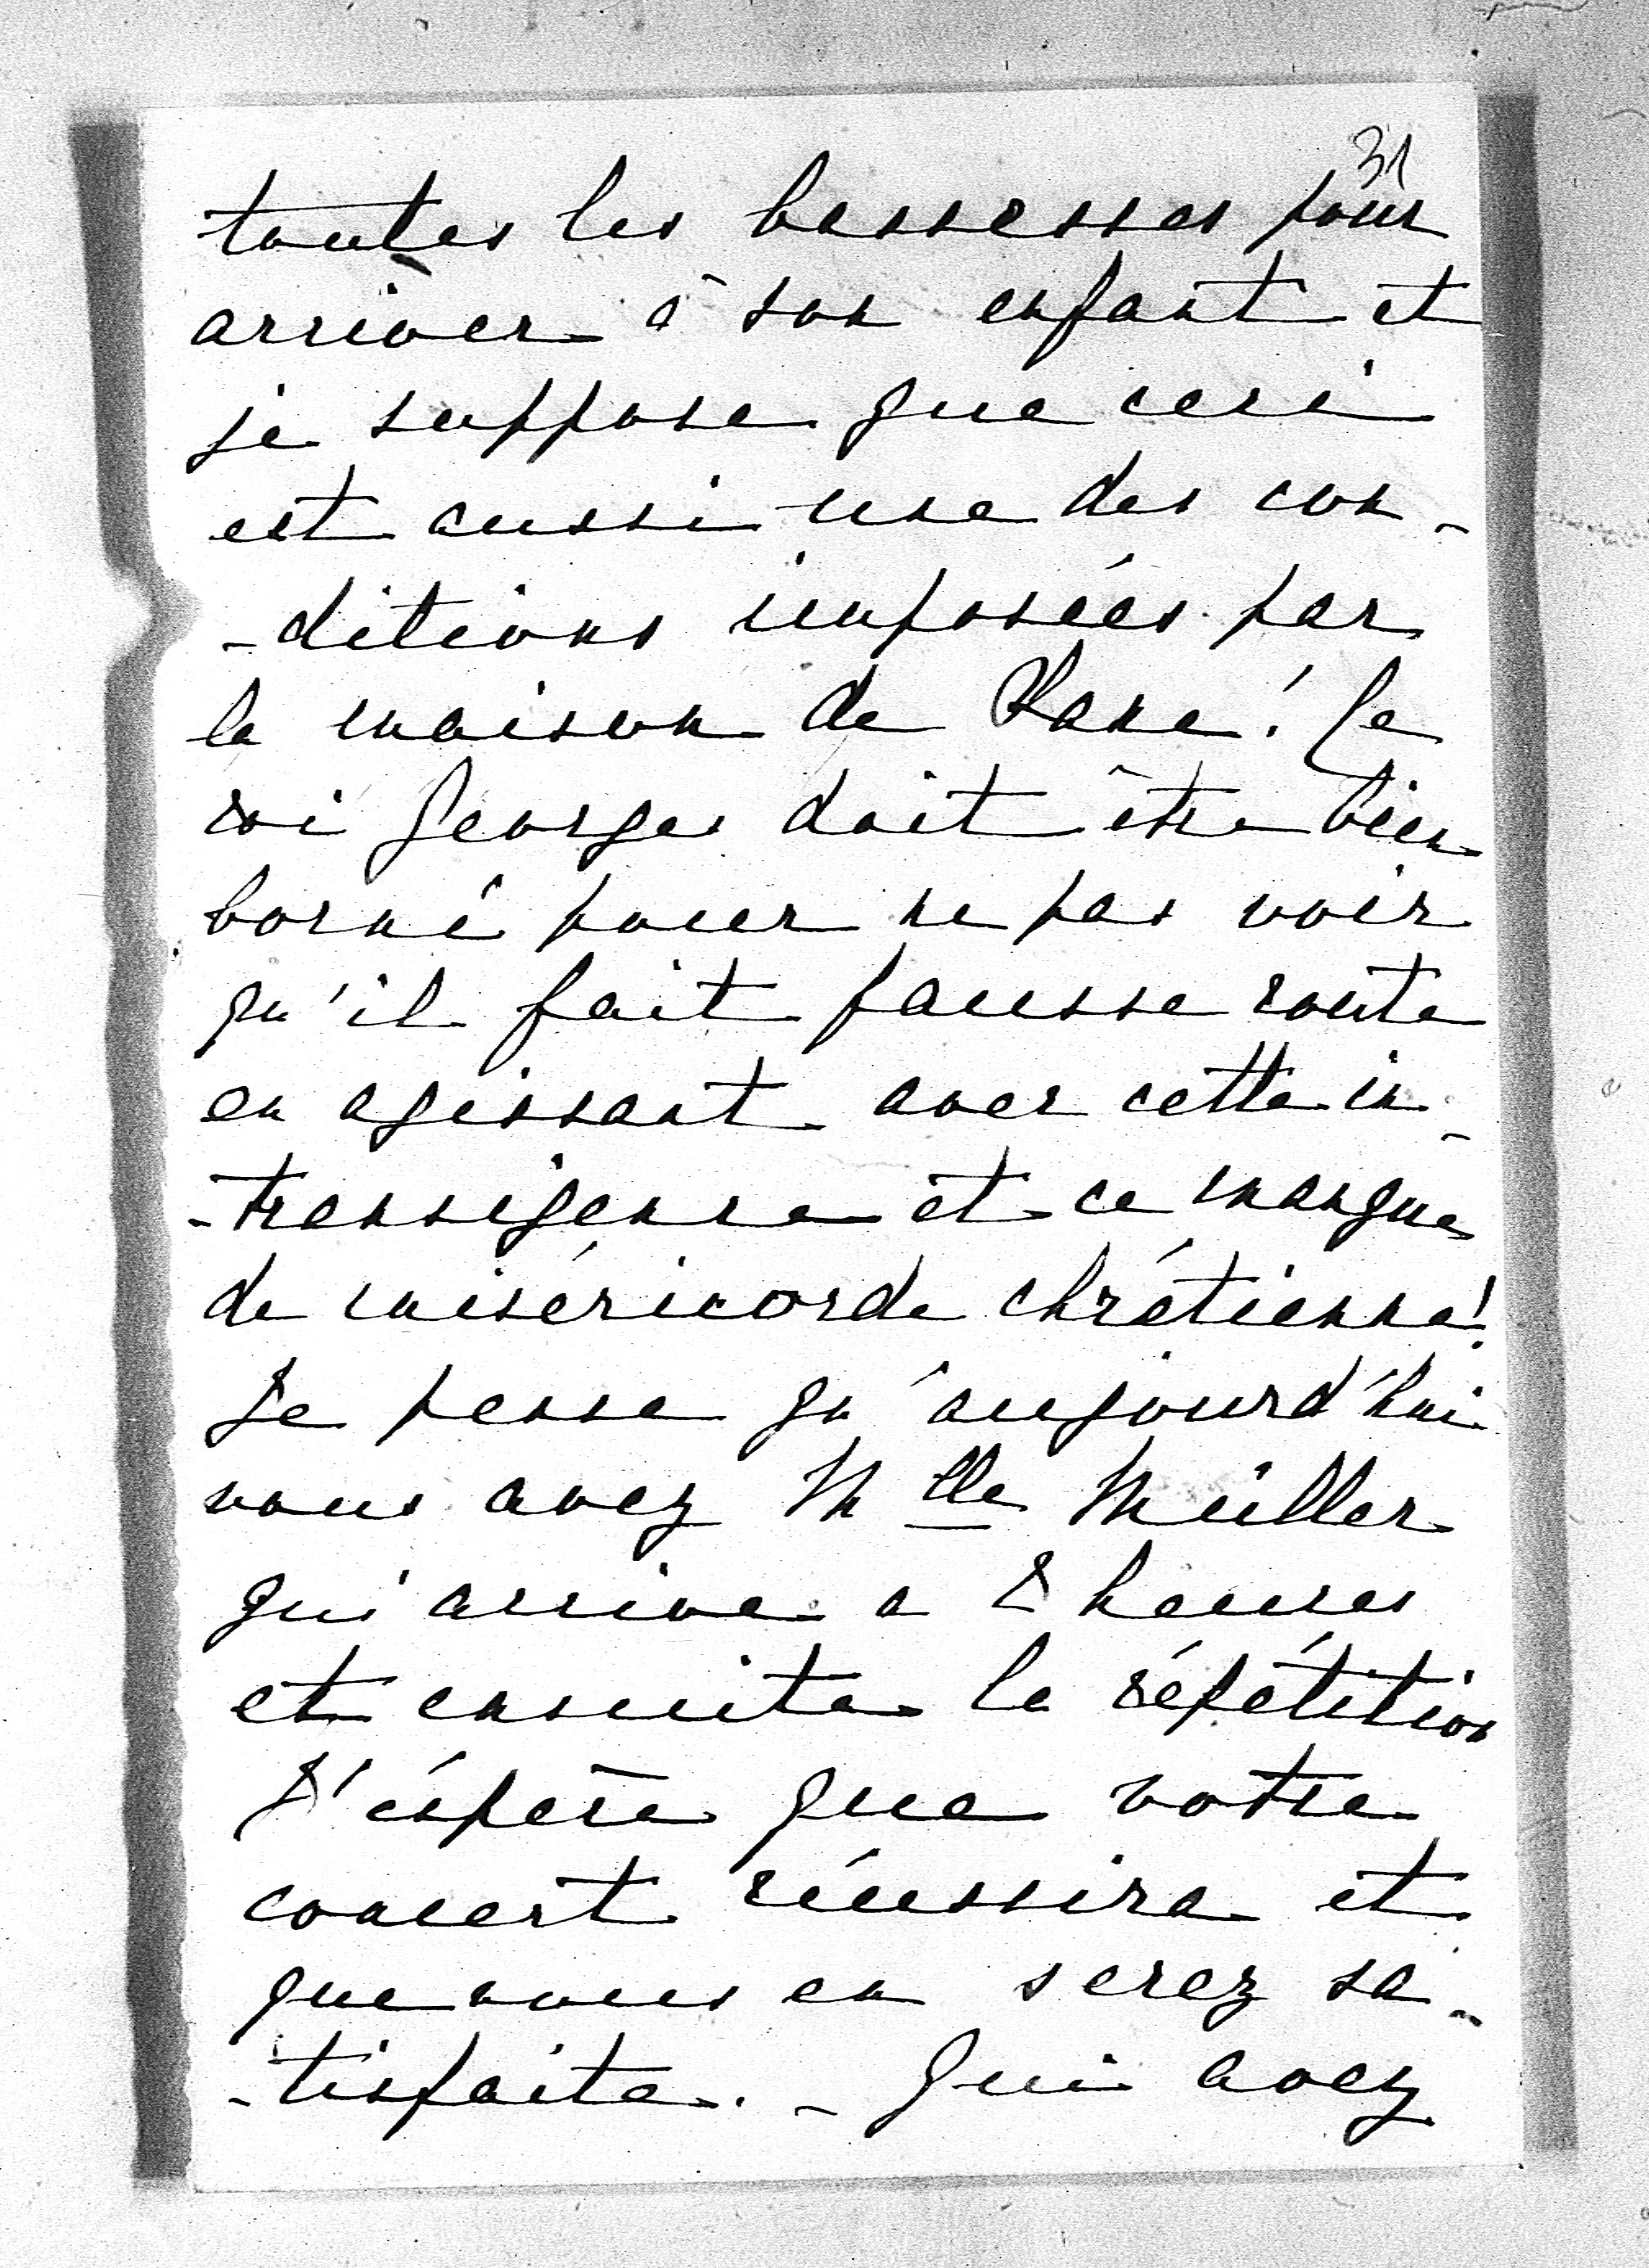 31
toutes les bassesses pour
arriver à son enfant et
je suppose que ceci
est aussi une des con-
-ditions imposées par
la maison de Saxe! Le
roi Georges doit être bien
borné pour ne pas voir
qu'il fait fausse route
en agissant avec cette in-
-transigence et ce manque
de miséricorde chrétienne!
Je pense qu'aujourd'hui
vous avez Mlle Müller
qui arrive a 2 heures
et ensuite la répétition
J'éspère que votre
concert réussira et
que vous en serez sa-
-tisfaite. - Qui avez